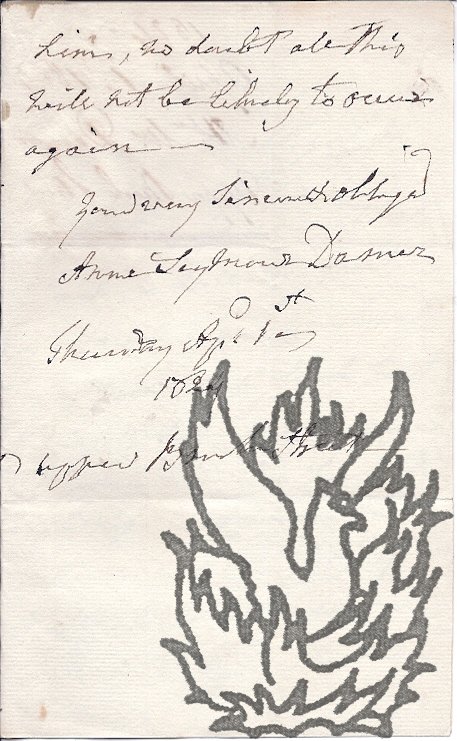 him, no doubt all this
will not be likely to occur
again —
Your very sincere & obliged
Anne Seymour Damer
Thursday Apl 1st
182
Upper Brook Street